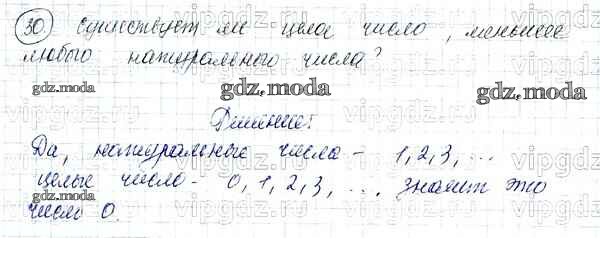 30 Существует ли целое число, меньшее
любого натурального числа?
gdz.moda gdz.moda gdz.moda
Решение:
Да, натуральные числа - 1, 2, 3, ...
целые число - 0, 1, 2, 3, ... значит это
gdz.moda gdz.moda
число 0.